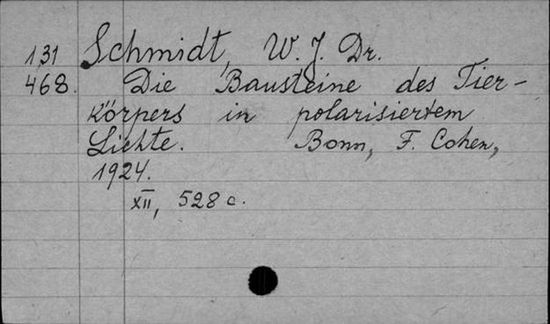 131 Schmidt, W. J. Dr.
468. Die Bausteine des Tier-
körpers in polarisiertem
Lichte. Bonn, F. Cohen,
1924.
XII, 528 c.